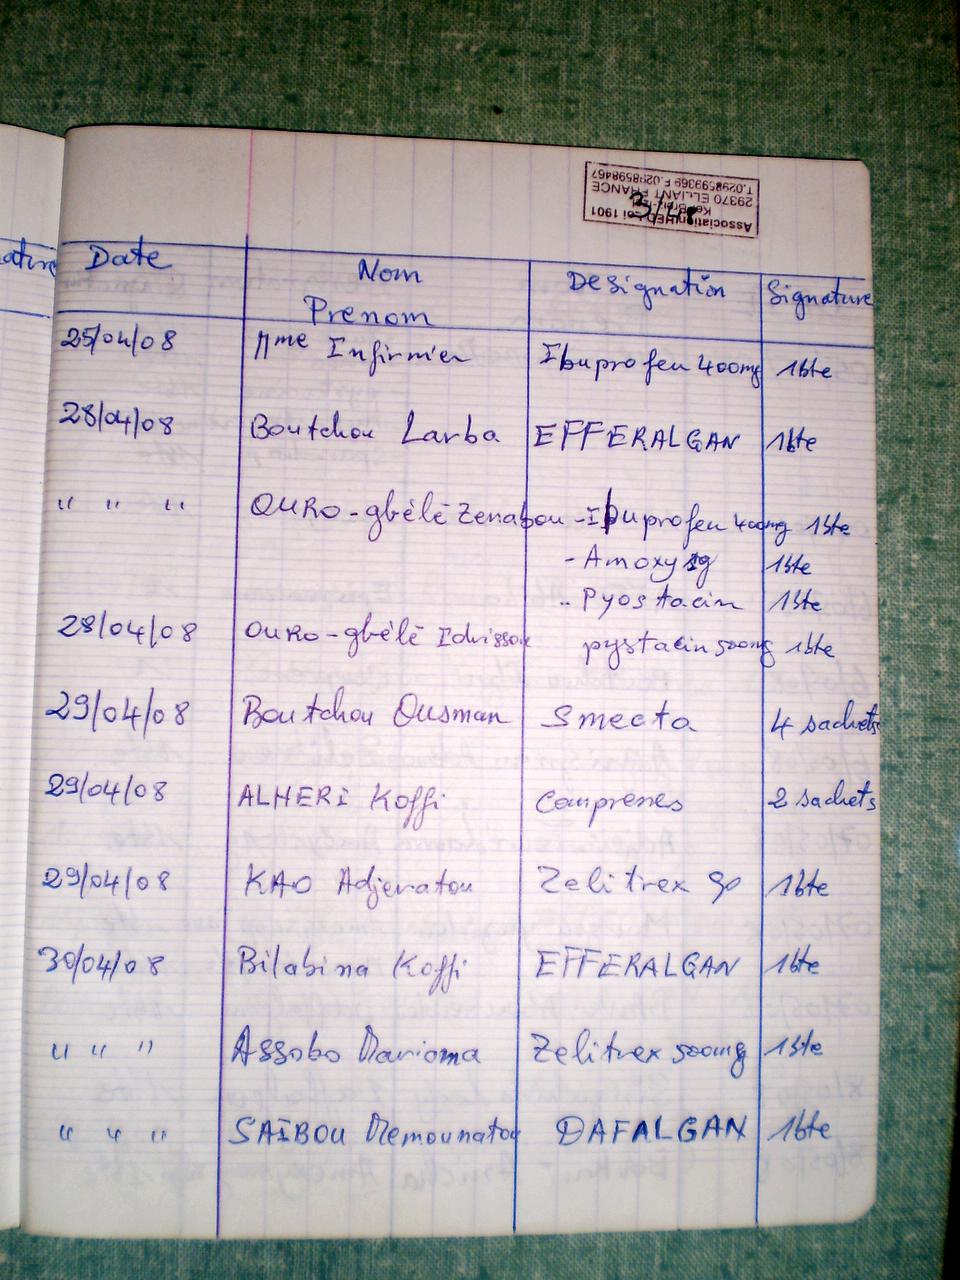 Association HED Loi 1901
29370 ELLIANT FRANCE
T.0298598229 F.0298598467
3/48
ature Date Nom Designation Signature
Prenom
25/04/08 Mme Infirmier Ibuprofen 400mg 1bte
28/04/08 Boutchou Larba EFFERALGAN 1bte
" " " OURO-gbélé Zenabou - Ibuprofen 400mg 1bte
- Amoxy 1g 1bte
.. Pyostacin 1bte
28/04/08 OURO-gbélé Idrissou pystacin 500mg 1bte
29/04/08 Boutchou Ousman Smecta 4 sachets
29/04/08 ALHERI Koffi Compresses 2 sachets
29/04/08 KAO Adjeratou Zelitrex 1bte
30/04/08 Bilabina Koffi EFFERALGAN 1bte
" " " Assobo Mariama Zelitrex 500mg 1bte
" " " SAÏBOU Memounatou DAFALGAN 1bte